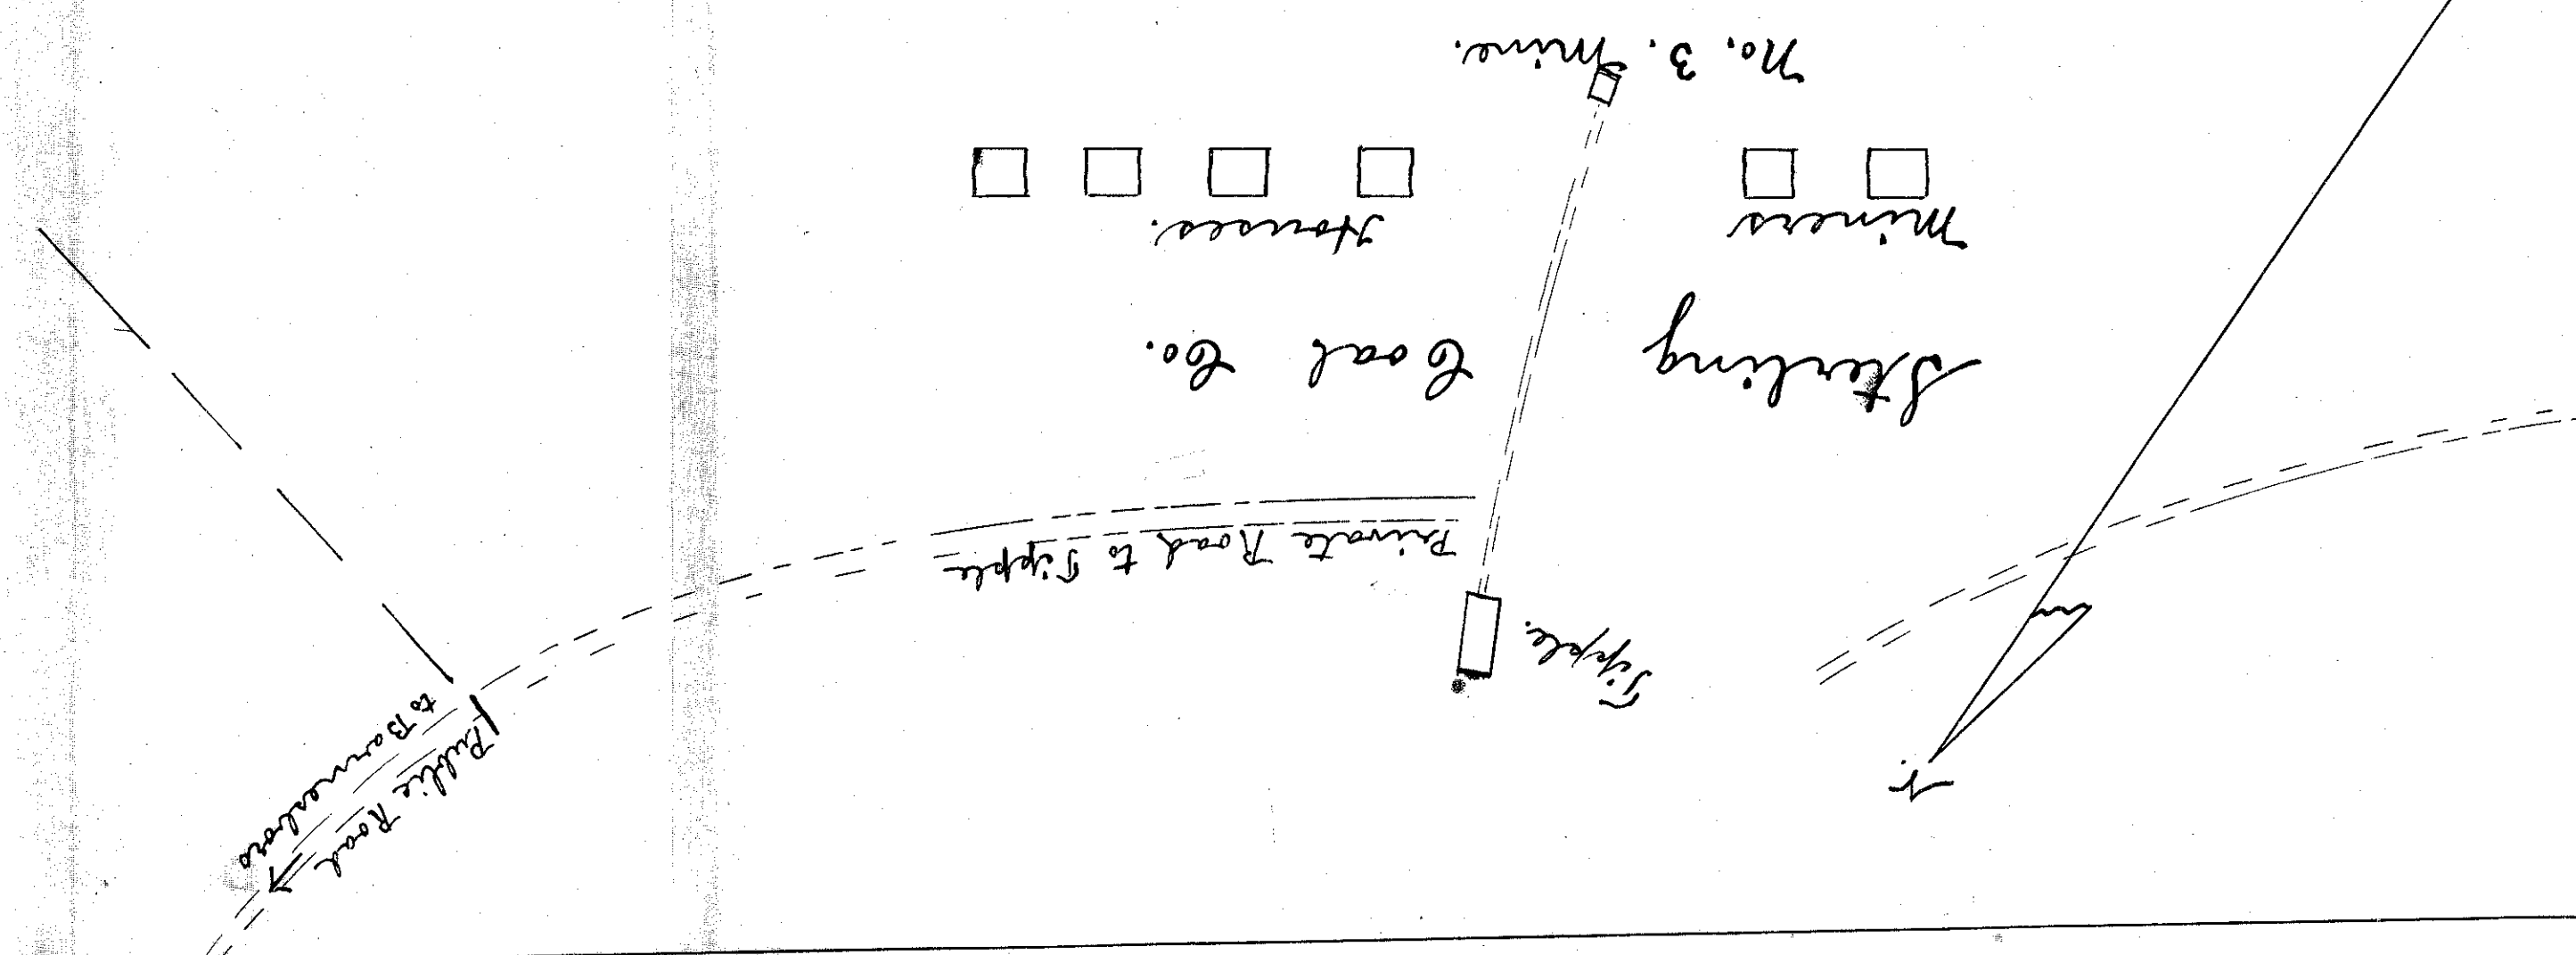 N.
Public Road
to Barnesboro
Tipple.
Private Road to Tipple
Sterling Coal Co.
Miners Houses.
No. 3. Mine.